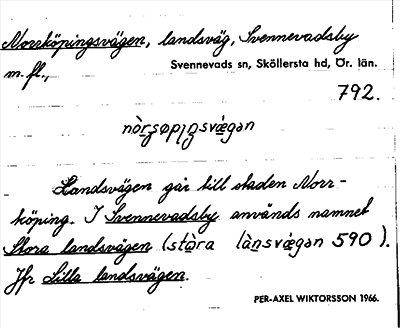 Norrköpingsvägen, landsväg, Svennevadsby
m. fl., Svennevads sn, Sköllersta hd, Ör. län.
792.
Landsvägen går till staden Norr-
köping. I Svennevadsby används namnet
Stora landsvägen (stòra lànsvægən 590).
Jfr Lilla landsvägen.
PER-AXEL WIKTORSSON 1966.